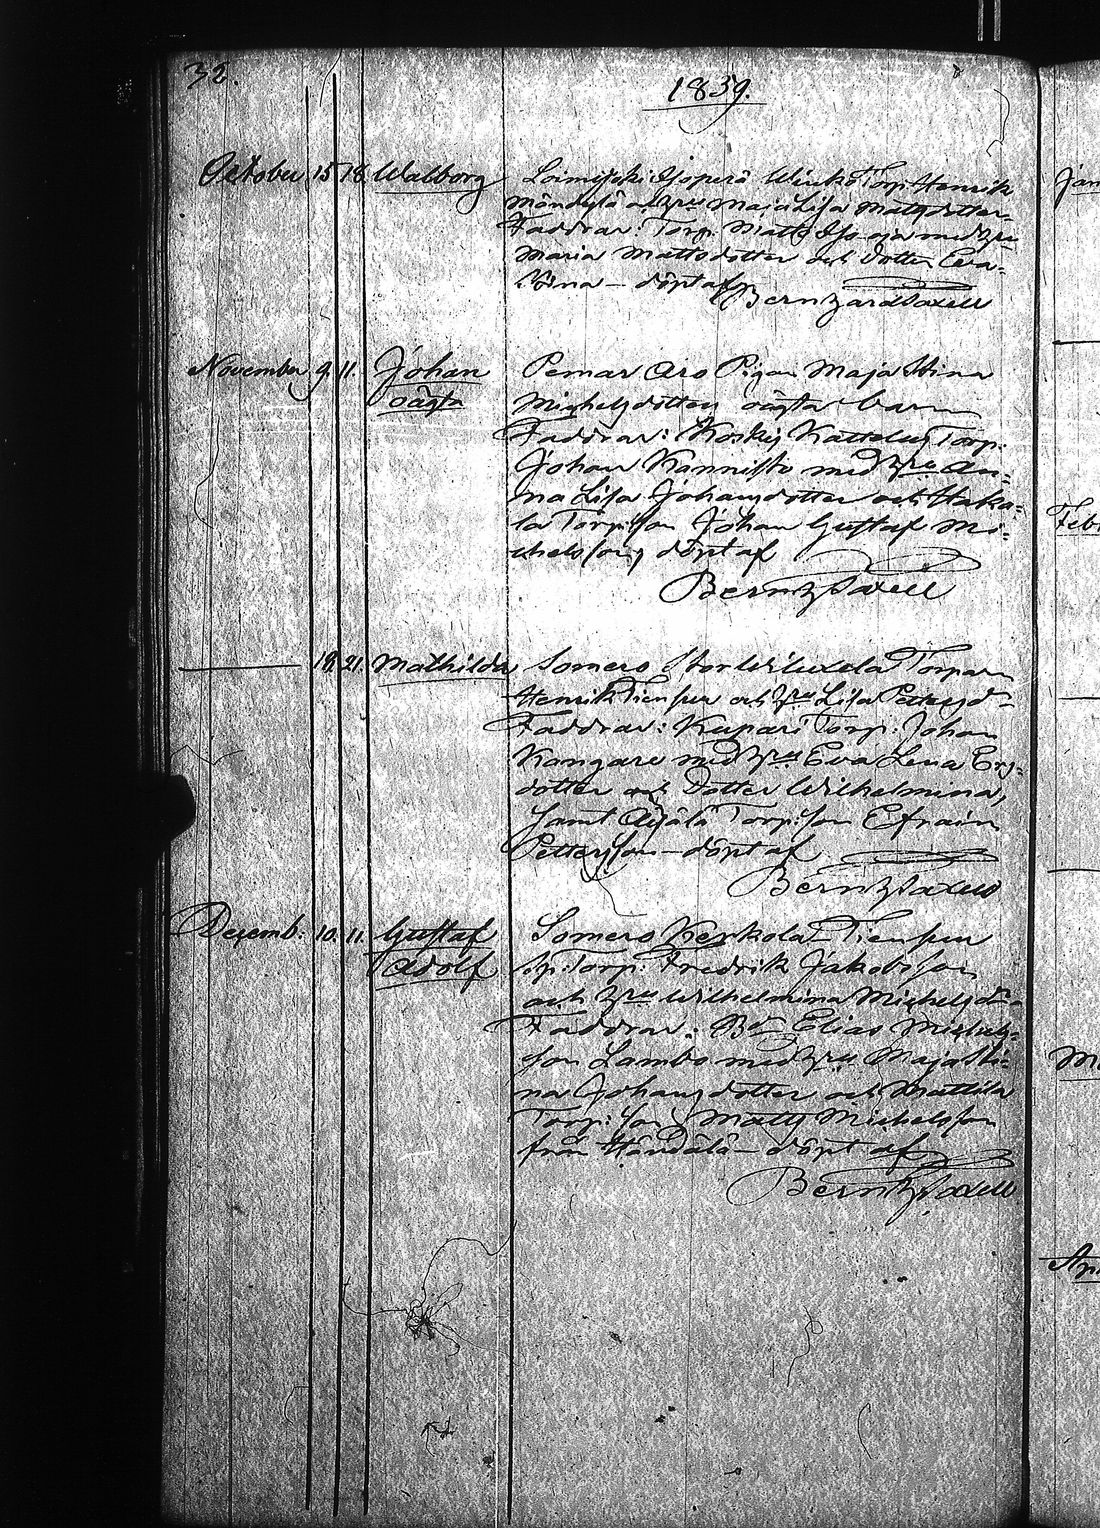 32.
1839.
October 15 18 Walborg Loimijoki Torp: Henrik
Mändylä och Hru Maja Lisa Matsdotter
Faddrar: Torp: Matts med Hru
Maria Mattsdotter och dotter Eva
Stina – döpt af
Berntz ard Saxell
November 9. 11. Johan Pemar Aro Pigan Maja Stina
oägta Michelsdotters oägta barn
Faddrar: Koskis Kattelus Torp:
Johan Kannisto med Hru An=
na Lisa Johansdotter och Haka=
la Torp: son Johan Gustaf Mi=
chelsson, döpt af
Berntz Saxell
19. 21. Mathilda Somero Torparn
Henrik Tiensuu och Hru Lisa Pettersd=
Faddrar: Kupari Torp: Johan
Kangare med Hru Eva Lena Ers=
dotter och Dotter Wilhelmina,
samt Äijälä Torp: son Efraim
Pettersson – döpt af
Berntz Saxell
Dezemb. 10. 11. Gustaf Somero Kerkola Tiensuu
Adolf Sp: Torp: Fredrik Jakobsson
och Hru Wilhelmina Michelsd=
Faddrar: Bd: Elias Michels=
son Lambo med Hru Maja Sti=
na Johansdotter och Mattila
Torp: son Matts Michelsson
från Händälä – döpt af
Berntz Saxell
Jan
Feb
Ma
Apr